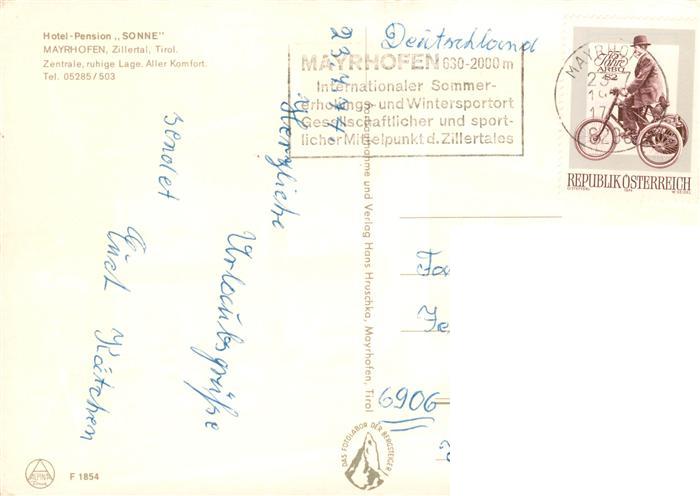 Hotel-Pension „SONNE"
MAYRHOFEN, Zillertal, Tirol.
Zentrale, ruhige Lage. Aller Komfort.
Tel. 05285/503
Deutschland
MAYRHOFEN 630-2000m
Internationaler Sommer-
erholungs- und Wintersportort
Gesellschaftlicher und sport-
licher Mittelpunkt d. Zillertales
MAYRHOF
75 Jahre
ARBÖ
REPUBLIK ÖSTERREICH
23.7.74
Herzliche
Urlaubsgrüße
sendet
Euch Kätchen
und Verlag Hans Hruschka, Mayrhofen, Tirol
6906
DAS FOTOLABOR DER BERGSTEIGER
ALPINA
F 1854